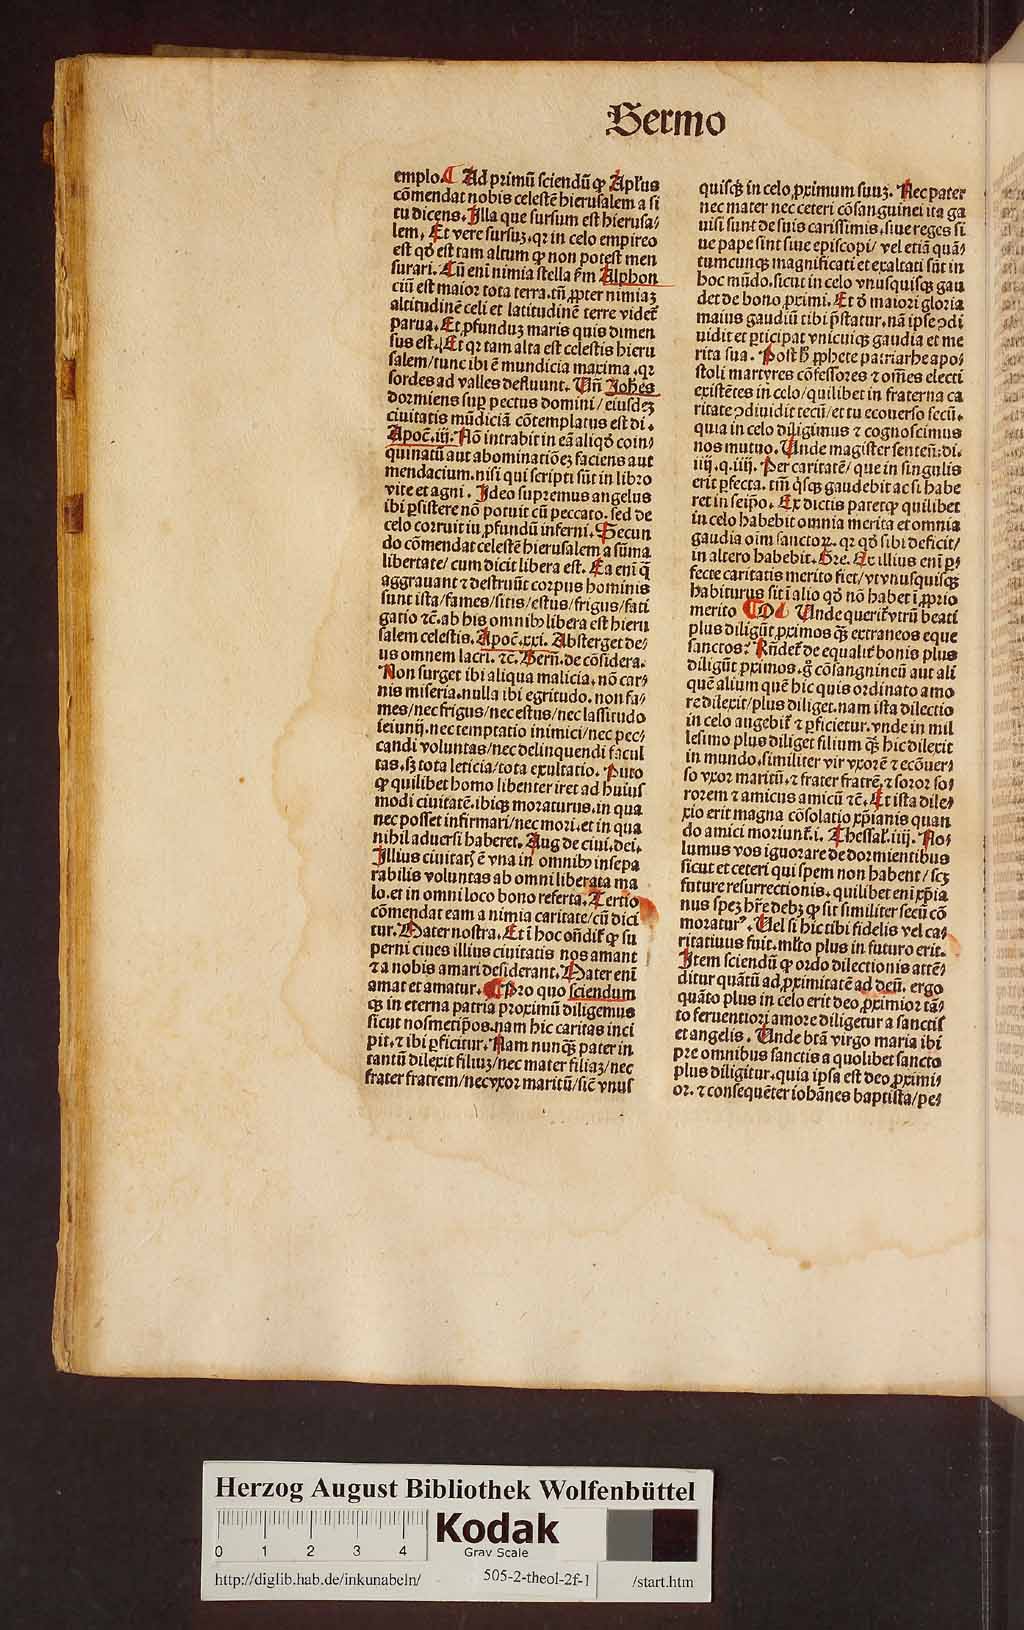 Sermo
emplo. Ad primū sciendū ꝙ Apl'us
cōmendat nobis celestē hierusalem a si
tu dicens. Illa que sursum est hierusa/
lem. Et vere sursuꝫ. qꝛ in celo empireo
est qđ est tam altum ꝙ non potest men
surari. Cū eni nimia stella ẜm Alphon
ciū est maior tota terra. tñ ꝓpter nimiaꝫ
altitudinē celi et latitudinē terre videt̄
parua. Et ꝓfunduꝫ maris quis dimen
sus est. Et qꝛ tam alta est celestis hieru
salem/tunc ibi ē mundicia maxima. qꝛ
sordes ad valles defluunt. Vñ Johēs
dormiens suꝑ pectus domini/ eiusdeꝫ
ciuitatis mūdiciā cōtemplatus est di.
Apoc̄. iij. Nō intrabit in eā aliqđ coin/
quinatū aut abominatiōeꝫ faciens aut
mendacium. nisi qui scripti sūt in libro
vite et agni. Ideo supremus angelus
ibi ꝑsistere nō potuit cū peccato. sed de
celo corruit iu ꝓfundū inferni. Secun
do cōmendat celestē hierusalem a sūma
libertate/ cum dicit libera est. Ea enī q̄
aggrauant ⁊ destruūt corpus hominis
sunt ista/fames/sitis/estus/frigus/fati
gatio ⁊c̄. ab his omnibꝫ libera est hieru
salem celestis. Apoc̄. xxi. Absterget de/
us omnem lacri. ⁊c̄. Bern̄. de cōsidera.
Non surget ibi aliqua malicia. nō car/
nis miseria. nulla ibi egritudo. non fa/
mes/nec frigus/nec estus/nec lassitudo
ieiunij. nec temptatio inimici/nec pec/
candi voluntas/nec delinquendi facul
tas. sꝫ tota leticia/tota exultatio. Puto
ꝙ quilibet homo libenter iret ad huius
modi ciuitatē. ibiqꝫ moraturus. in qua
nec posset infirmari/nec mori. et in qua
nihil aduersi haberet. Aug de ciui. dei.
Illius ciuitatꝭ ē vna in omnibꝫ insepa
rabilis voluntas ab omni liberata ma
lo. et in omni loco bono referta. Tertio
cōmendat eam a nimia caritate/cū dici
tur. Mater nostra. Et ī hoc oñdit̄ ꝙ su
perni ciues illius ciuitatis nos amant
⁊ a nobis amari desiderant. Mater enī
amat et amatur. Pro quo sciendum
ꝙ in eterna patria proximū diligemus
sicut nosmetip̄os. nam hic caritas inci
pit. ⁊ ibi ꝑficitur. Nam nunqꝫ pater in
tantū dilexit filiuꝫ/nec mater filiaꝫ/nec
frater fratrem/nec vxor maritū/sic̄ vnus
quisqꝫ in celo ꝓximum suuꝫ. Nec pater
nec mater nec ceteri cōsanguinei ita ga
uisi sunt de suis carissimis. siue reges si
ue pape sint siue episcopi/ vel etiā quā/
tumcunqꝫ magnificati et exaltati sūt in
hoc mūdo. sicut in celo vnusquisqꝫ gau
det de bono ꝓximi. Et ō maiori gloria
maius gaudiū tibi p̄statur. nā ipse ꝯdi
uidit et ꝑticipat vnicuiqꝫ gaudia et me
rita sua. Post h̄ ꝓphete patriarhe apo/
stoli martyres cōfessores ⁊ om̄es electi
existētes in celo/quilibet in fraterna ca
ritate ꝯdiuidit tecū/et tu ecouerso secū.
quia in celo diligimus ⁊ cognoscimus
nos mutuo. Unde magister senten̄. di.
iiij. q. iiij. Per caritatē/ que in singulis
erit ꝑfecta. tm̄ q̇sqꝫ gaudebit ac si habe
ret in seip̄o. Ex dictis patet ꝙ quilibet
in celo habebit omnia merita et omnia
gaudia oīm sanctoꝝ. qꝛ qđ sibi deficit/
in altero habebit. Gre. Ex illius enī ꝑ/
fecte caritatis merito fiet/vt vnusquisqꝫ
habiturus sit ī alio qđ nō habet ī ꝓprio
merito Unde querit̄ vtrū beati
plus diligūt ꝓximos qꝫ extraneos eque
sanctos? Rn̄det̄ de equalit̄ bonis plus
diligūt ꝓximos. g° cōsangnineū aut ali
quē alium quē hic quis ordinato amo
re dilexit/plus diliget. nam ista dilectio
in celo augebit̄ ⁊ ꝑficietur. vnde in mil
lesimo plus diliget filium qꝫ hic dilexit
in mundo. similiter vir vxorē ⁊ ecōuer/
so vxor maritū. ⁊ frater fratrē. ⁊ soror so/
rorem ⁊ amicus amicū ⁊c̄. Et ista dile/
xio erit magna cōsolatio xp̄ianis quan
do amici moriunt̄. i. Thessal'. iiij. No/
lumus vos iguorare de dormientibus
sicut et ceteri qui spem non habent/ scꝫ
future resurrectionis. quilibet enī xp̄ia
nus speꝫ hr̄e debꝫ ꝙ sit similiter secū cō
moraturꝰ. Vel si hic tibi fidelis vel ca/
ritatiuus fuit. ml̄to plus in futuro erit.
Item sciendū ꝙ ordo dilectionis attē/
ditur quātū ad ꝓximitatē ad deū. ergo
quāto plus in celo erit deo ꝓximior tā/
to feruentiori amore diligetur a sanctis
et angelis. Unde btā virgo maria ibi
pre omnibus sanctis a quolibet sancto
plus diligitur. quia ipsa est deo ꝓximi/
or. ⁊ consequēter iohānes baptista/pe/
Herzog August Bibliothek Wolfenbüttel
0 1 2 3 4
Kodak
Gray Scale
http://diglib.hab.de/inkunabeln/ 505-2-theol-2f-1 /start.htm